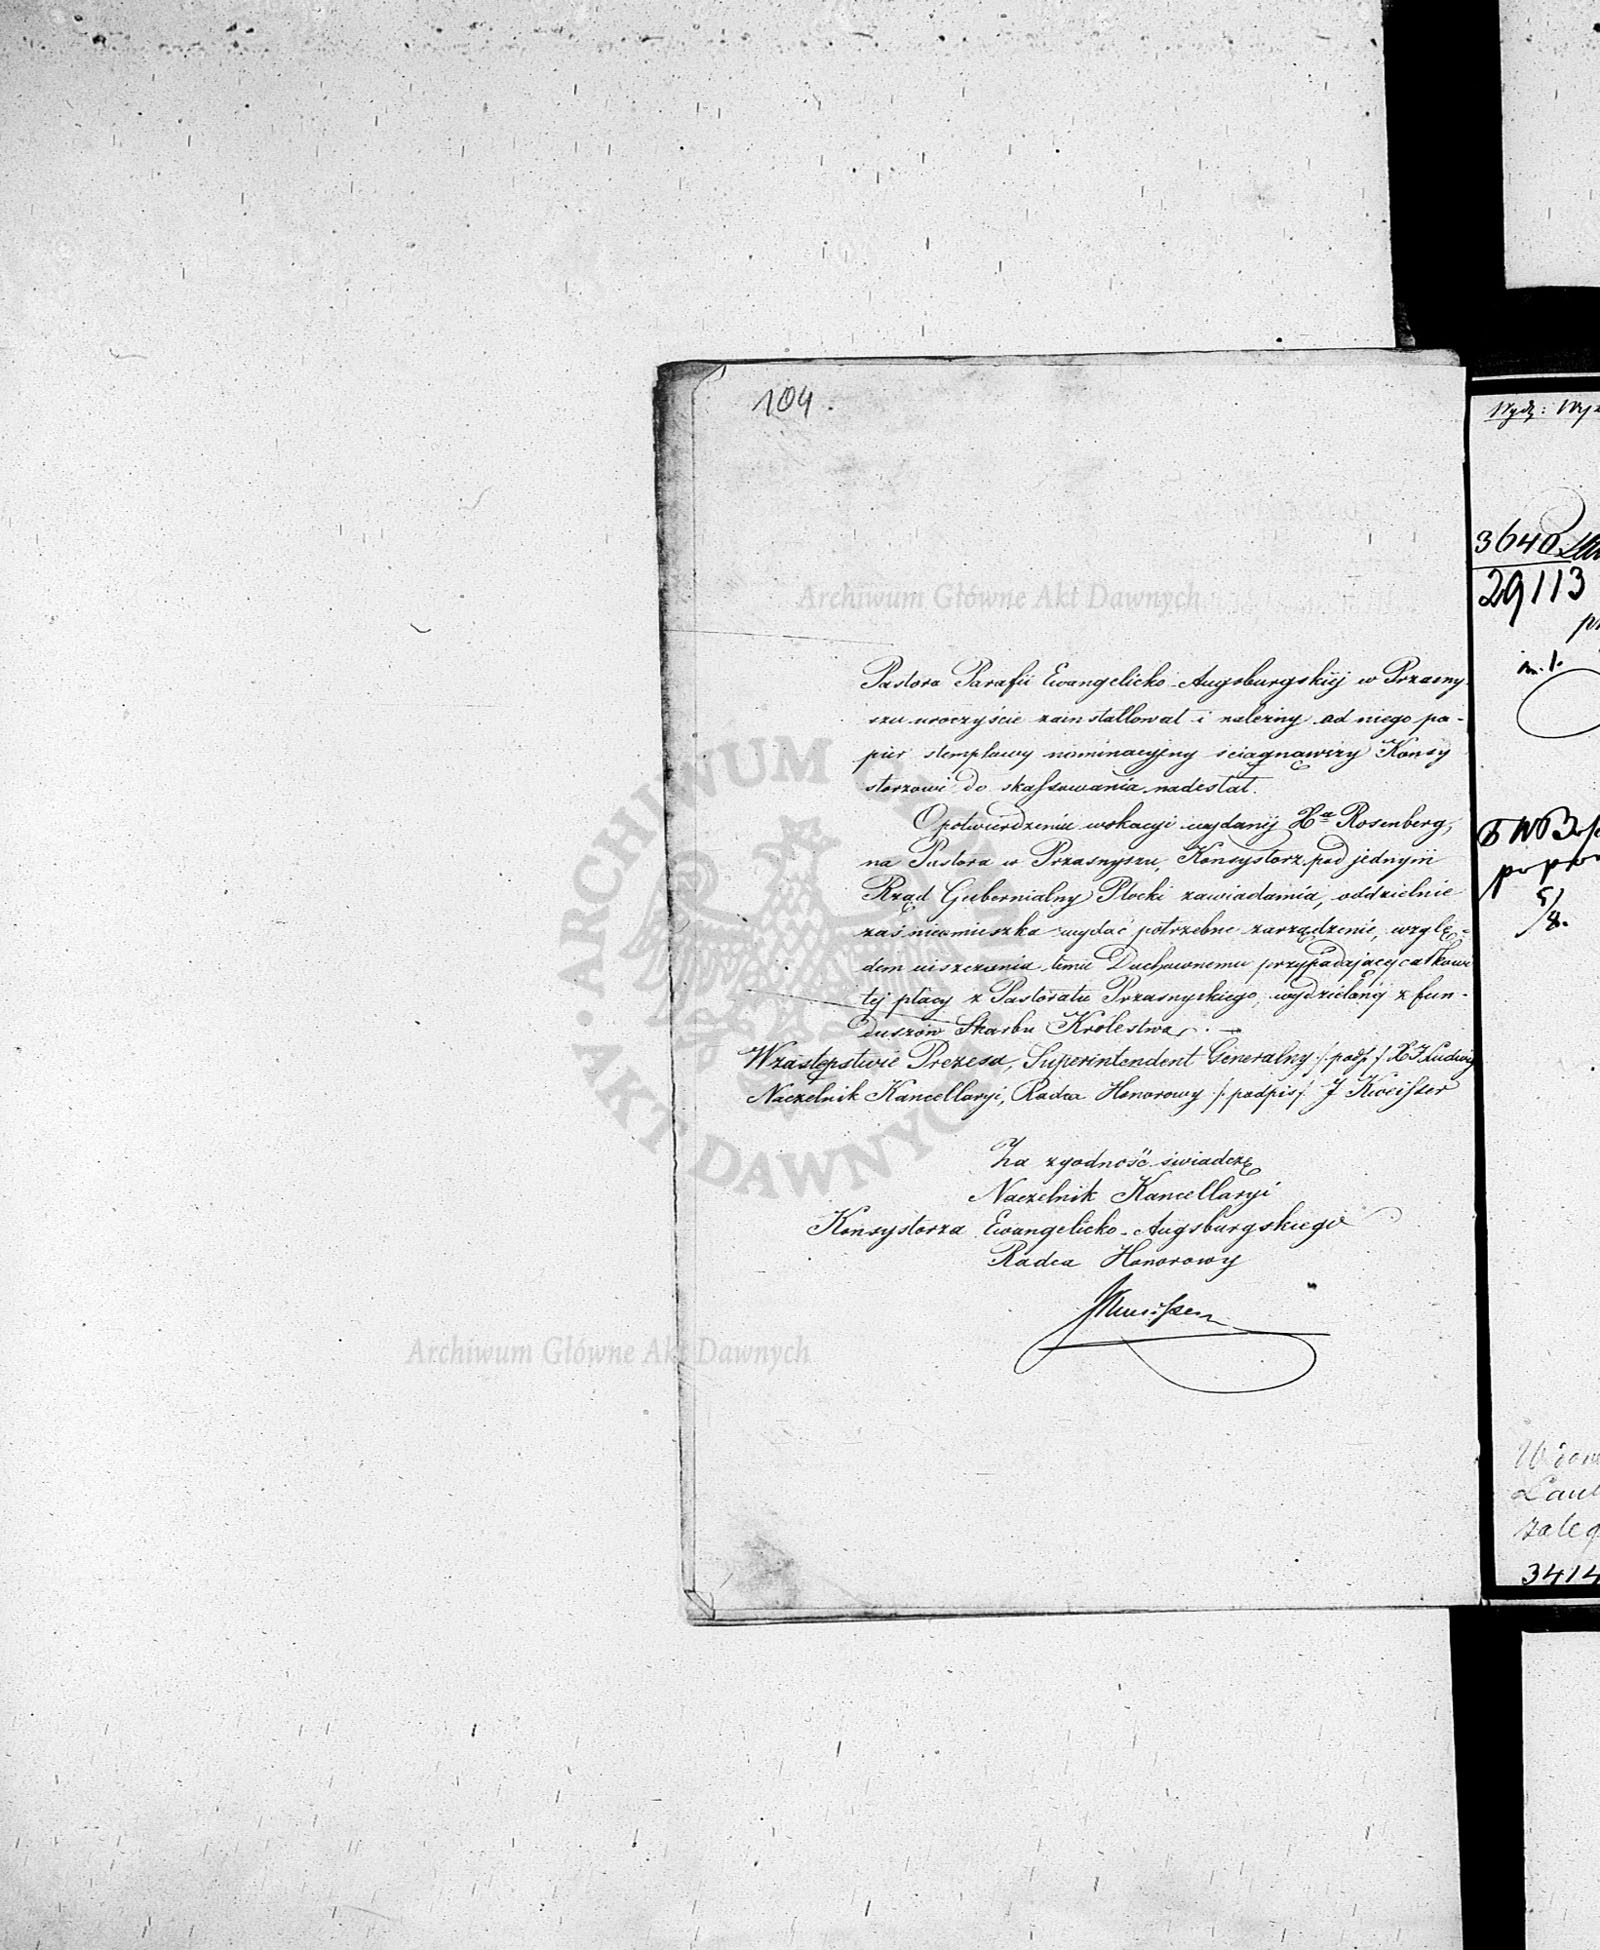 104.
Pastora Parafii Ewangelicko-Augsburgskiej w Przasny-
szu uroczyście zainstallował i należny od niego pa-
pier stemplowy nominacyjny ściągnąwszy Konsy
storzowi do skassowania nadesłał.
O potwierdzeniu wokacyi wydanej Xa Rosenberg,
na Pastora w Przasnyszu, Konsystorz pod jednym
Rząd Gubernialny Płocki zawiadamia, oddzielnie
zaś nieomieszka wydać potrzebne zarządzenie, wzglę-
dem uiszczania temu Duchownemu przypadającej całkowi
tej płacy z Pastoratu Przasnyskiego, wydzielonej z fun-
duszów Skarbu Królestwa.
W zastępstwie Prezesa, Superintendent Generalny /:podp:/ X J Ludwig
Naczelnik Kancellaryi, Radca Honorowy /:podpis/.
Za zgodność świadczę
Naczelnik Kancellaryi
Konsystorza Ewangelicko-Augsburgskiego
Radca Honorowy
3640
29113
5/8.
3414
Archiwum Główne Akt Dawnych
Archiwum Główne Akt Dawnych
ARCHIWUM GŁÓWNE
AKT DAWNYCH